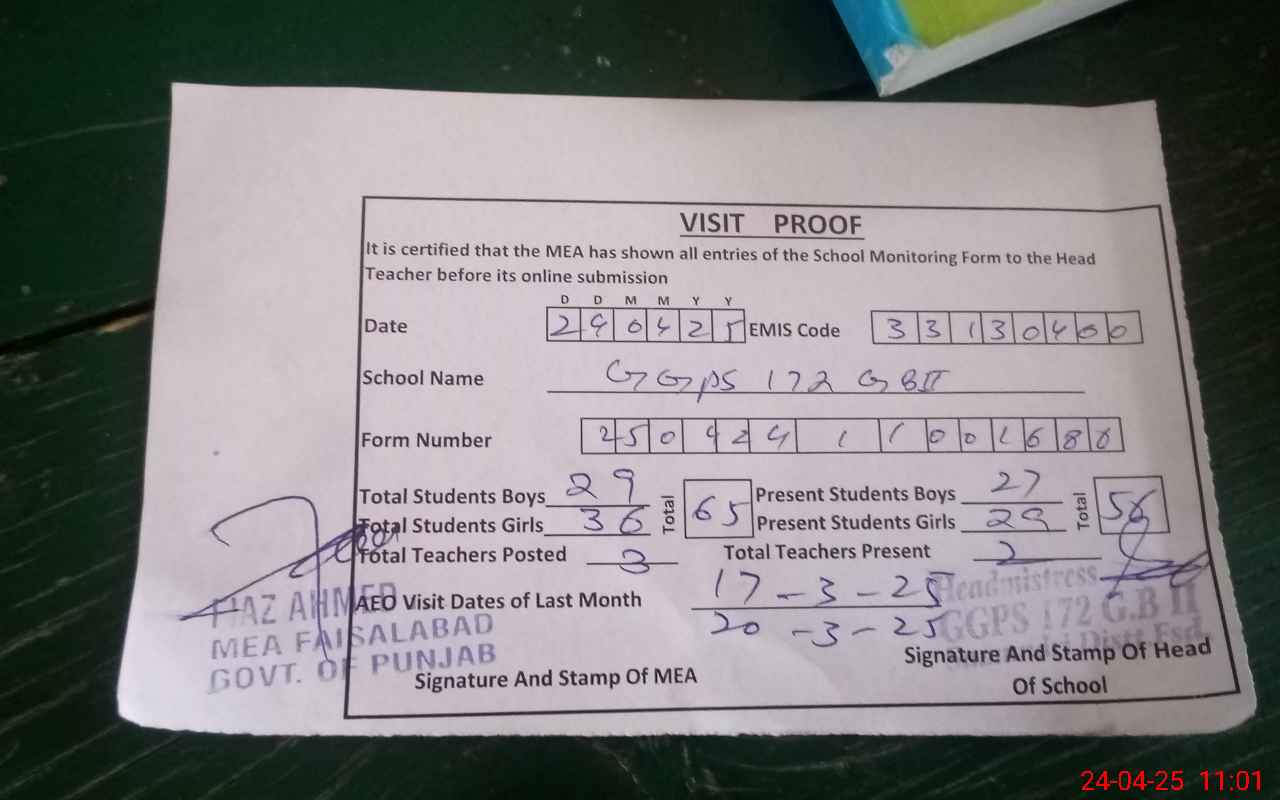 VISIT PROOF
It is certified that the MEA has shown all entries of the School Monitoring Form to the Head
Teacher before its online submission
D D M M Y Y
Date 240425 EMIS Code 33130400
School Name GGPS 172 GBII
Form Number 25042411001688
Total Students Boys 29 Total 65 Present Students Boys 27 Total 56
Total Students Girls 36 Present Students Girls 29
Total Teachers Posted 3 Total Teachers Present 2
AEO Visit Dates of Last Month 17-3-25
20-3-25
AHMED
MEA FAISALABAD
GOVT. OF PUNJAB
Signature And Stamp Of MEA
Headmistress
GGPS 172 G.B II
Distt Fsd
Signature And Stamp Of Head
Of School
24-04-25 11:01